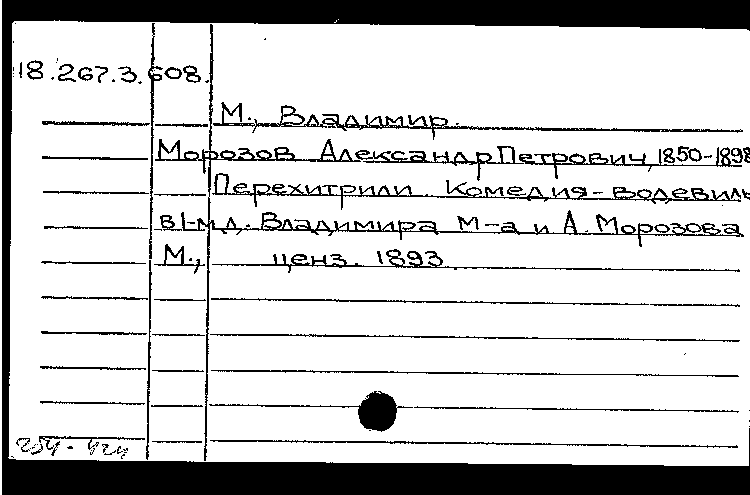 18.267.3.608.
М., Владимир.
Морозов Александр Петрович, 1850-1898
Перехитрили. Комедия-водевиль
в 1-м д. Владимира М-а и А. Морозова
М., ценз. 1893